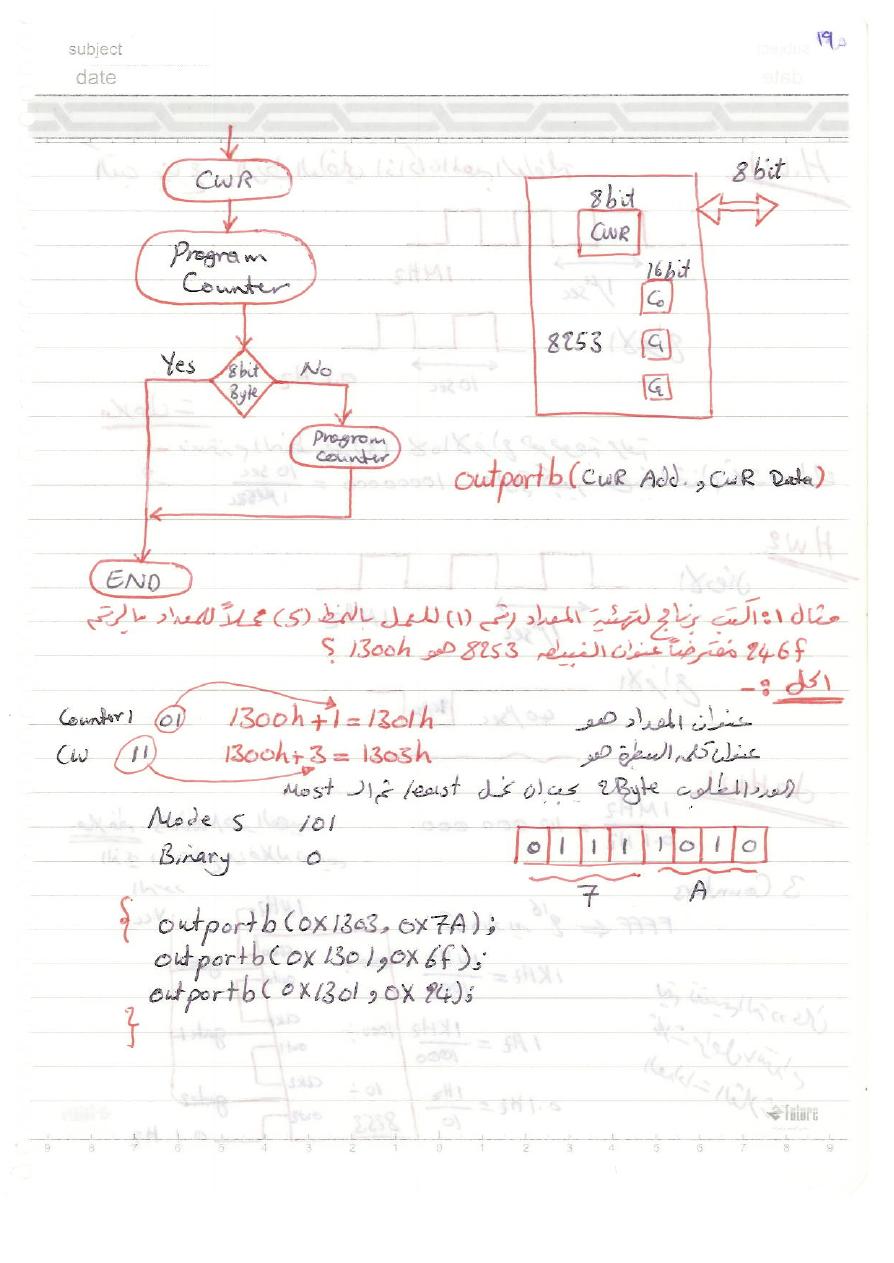 subject
date
١٩
CWR
Program
Counter
Yes
8bit
Byte
No
Program
Counter
END
8bit
8bit
CWR
16bit
C0
8253
C1
C2
outportb(CWR Add. , CWR Data)
مثال ١: اكتب برنامج لتهيئة المعداد رقم (١) للعمل بالنمط (5) محملاً للمعداد بالرقم
246f مفترضاً عنوان القبيطه 8253 هو 1300h ؟
الحل :-
Counter1 01 1300h+1=1301h عنوان المعداد هو
CW 11 1300h+3=1303h عنوان كلمه السيطرة هو
العدد المطلوب 2Byte يجب ان نحمل least ثم الـ Most
Mode 5 101
Binary 0
0 1 1 1 1 0 1 0
7 A
{ outportb(0X1303, 0X7A);
outportb(0X1301, 0X6f);
outportb(0X1301, 0X24);
}
Future
9 8 7 6 5 4 3 2 1 0 1 2 3 4 5 6 7 8 9